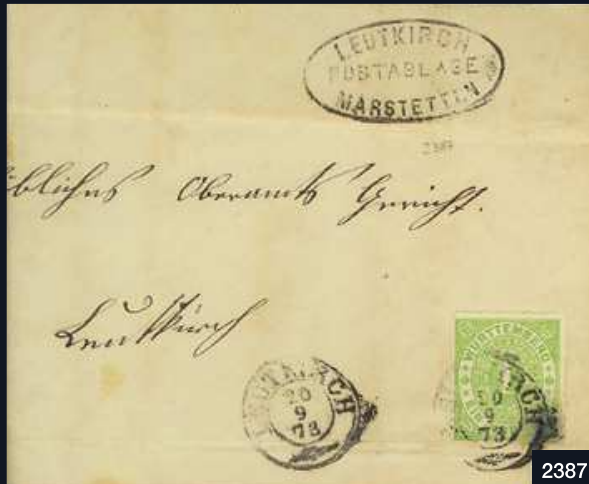 LEUTKIRCH
POSTABLAGE
MARSTETTEN
2387
öbliches Oberamts Gericht.
Leutkirch
LEUTKIRCH
20
9
73
WÜRTTEMBERG
LEUTKIRCH
20
9
73
2387